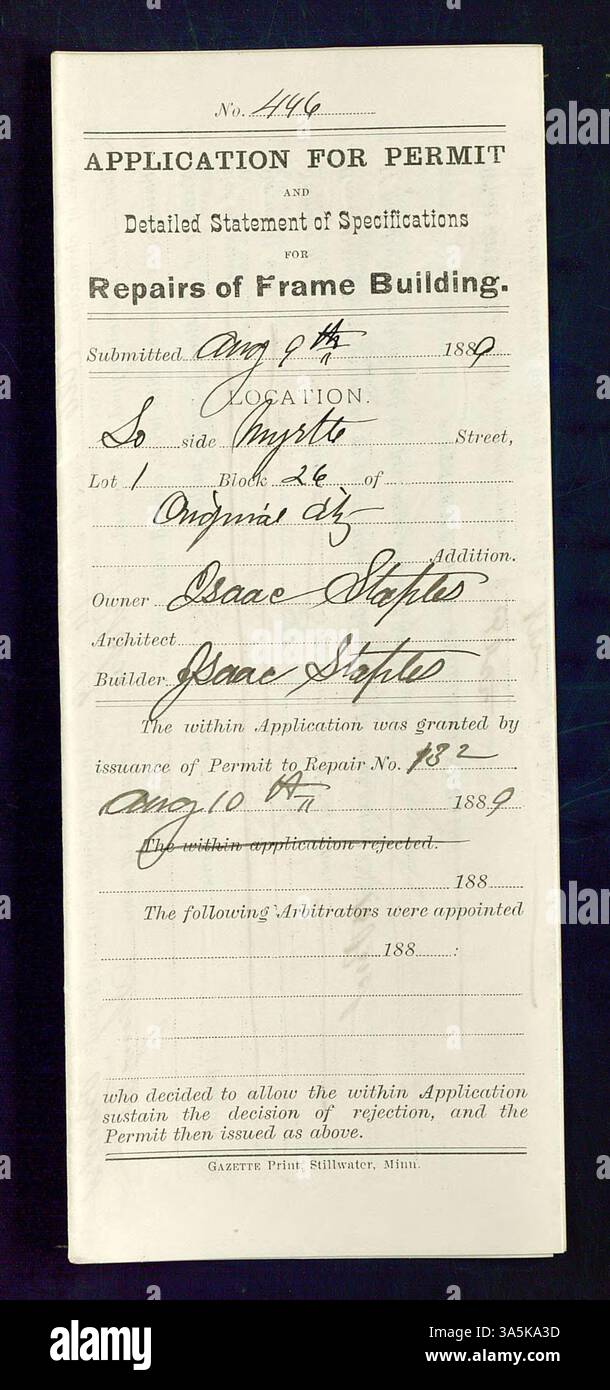 No. 446
APPLICATION FOR PERMIT
AND
Detailed Statement of Specifications
FOR
Repairs of Frame Building.
Submitted Aug 9th 1889
LOCATION.
So side Myrtle Street,
Lot 1 Block 26 of
Original City
Addition.
Owner Isaac Staples
Architect
Builder Isaac Staples
The within Application was granted by
issuance of Permit to Repair No. 132
Aug 10th 1889
The within application rejected.
188
The following Arbitrators were appointed
188 :
who decided to allow the within Application
sustain the decision of rejection, and the
Permit then issued as above.
GAZETTE Print, Stillwater, Minn.
alamy
Image ID: A5KA3D
www.alamy.com